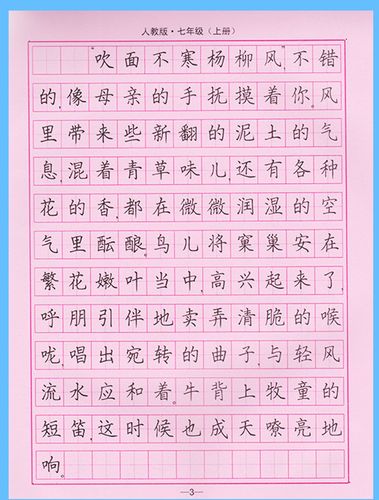 人教版·七年级（上册）
“吹面不寒杨柳风”,不错
的,像母亲的手抚摸着你。风
里带来些新翻的泥土的气
息,混着青草味儿,还有各种
花的香,都在微微润湿的空
气里酝酿。鸟儿将窠巢安在
繁花嫩叶当中,高兴起来了,
呼朋引伴地卖弄清脆的喉
咙,唱出宛转的曲子,与轻风
流水应和着。牛背上牧童的
短笛,这时候也成天嘹亮地
响。
—3—